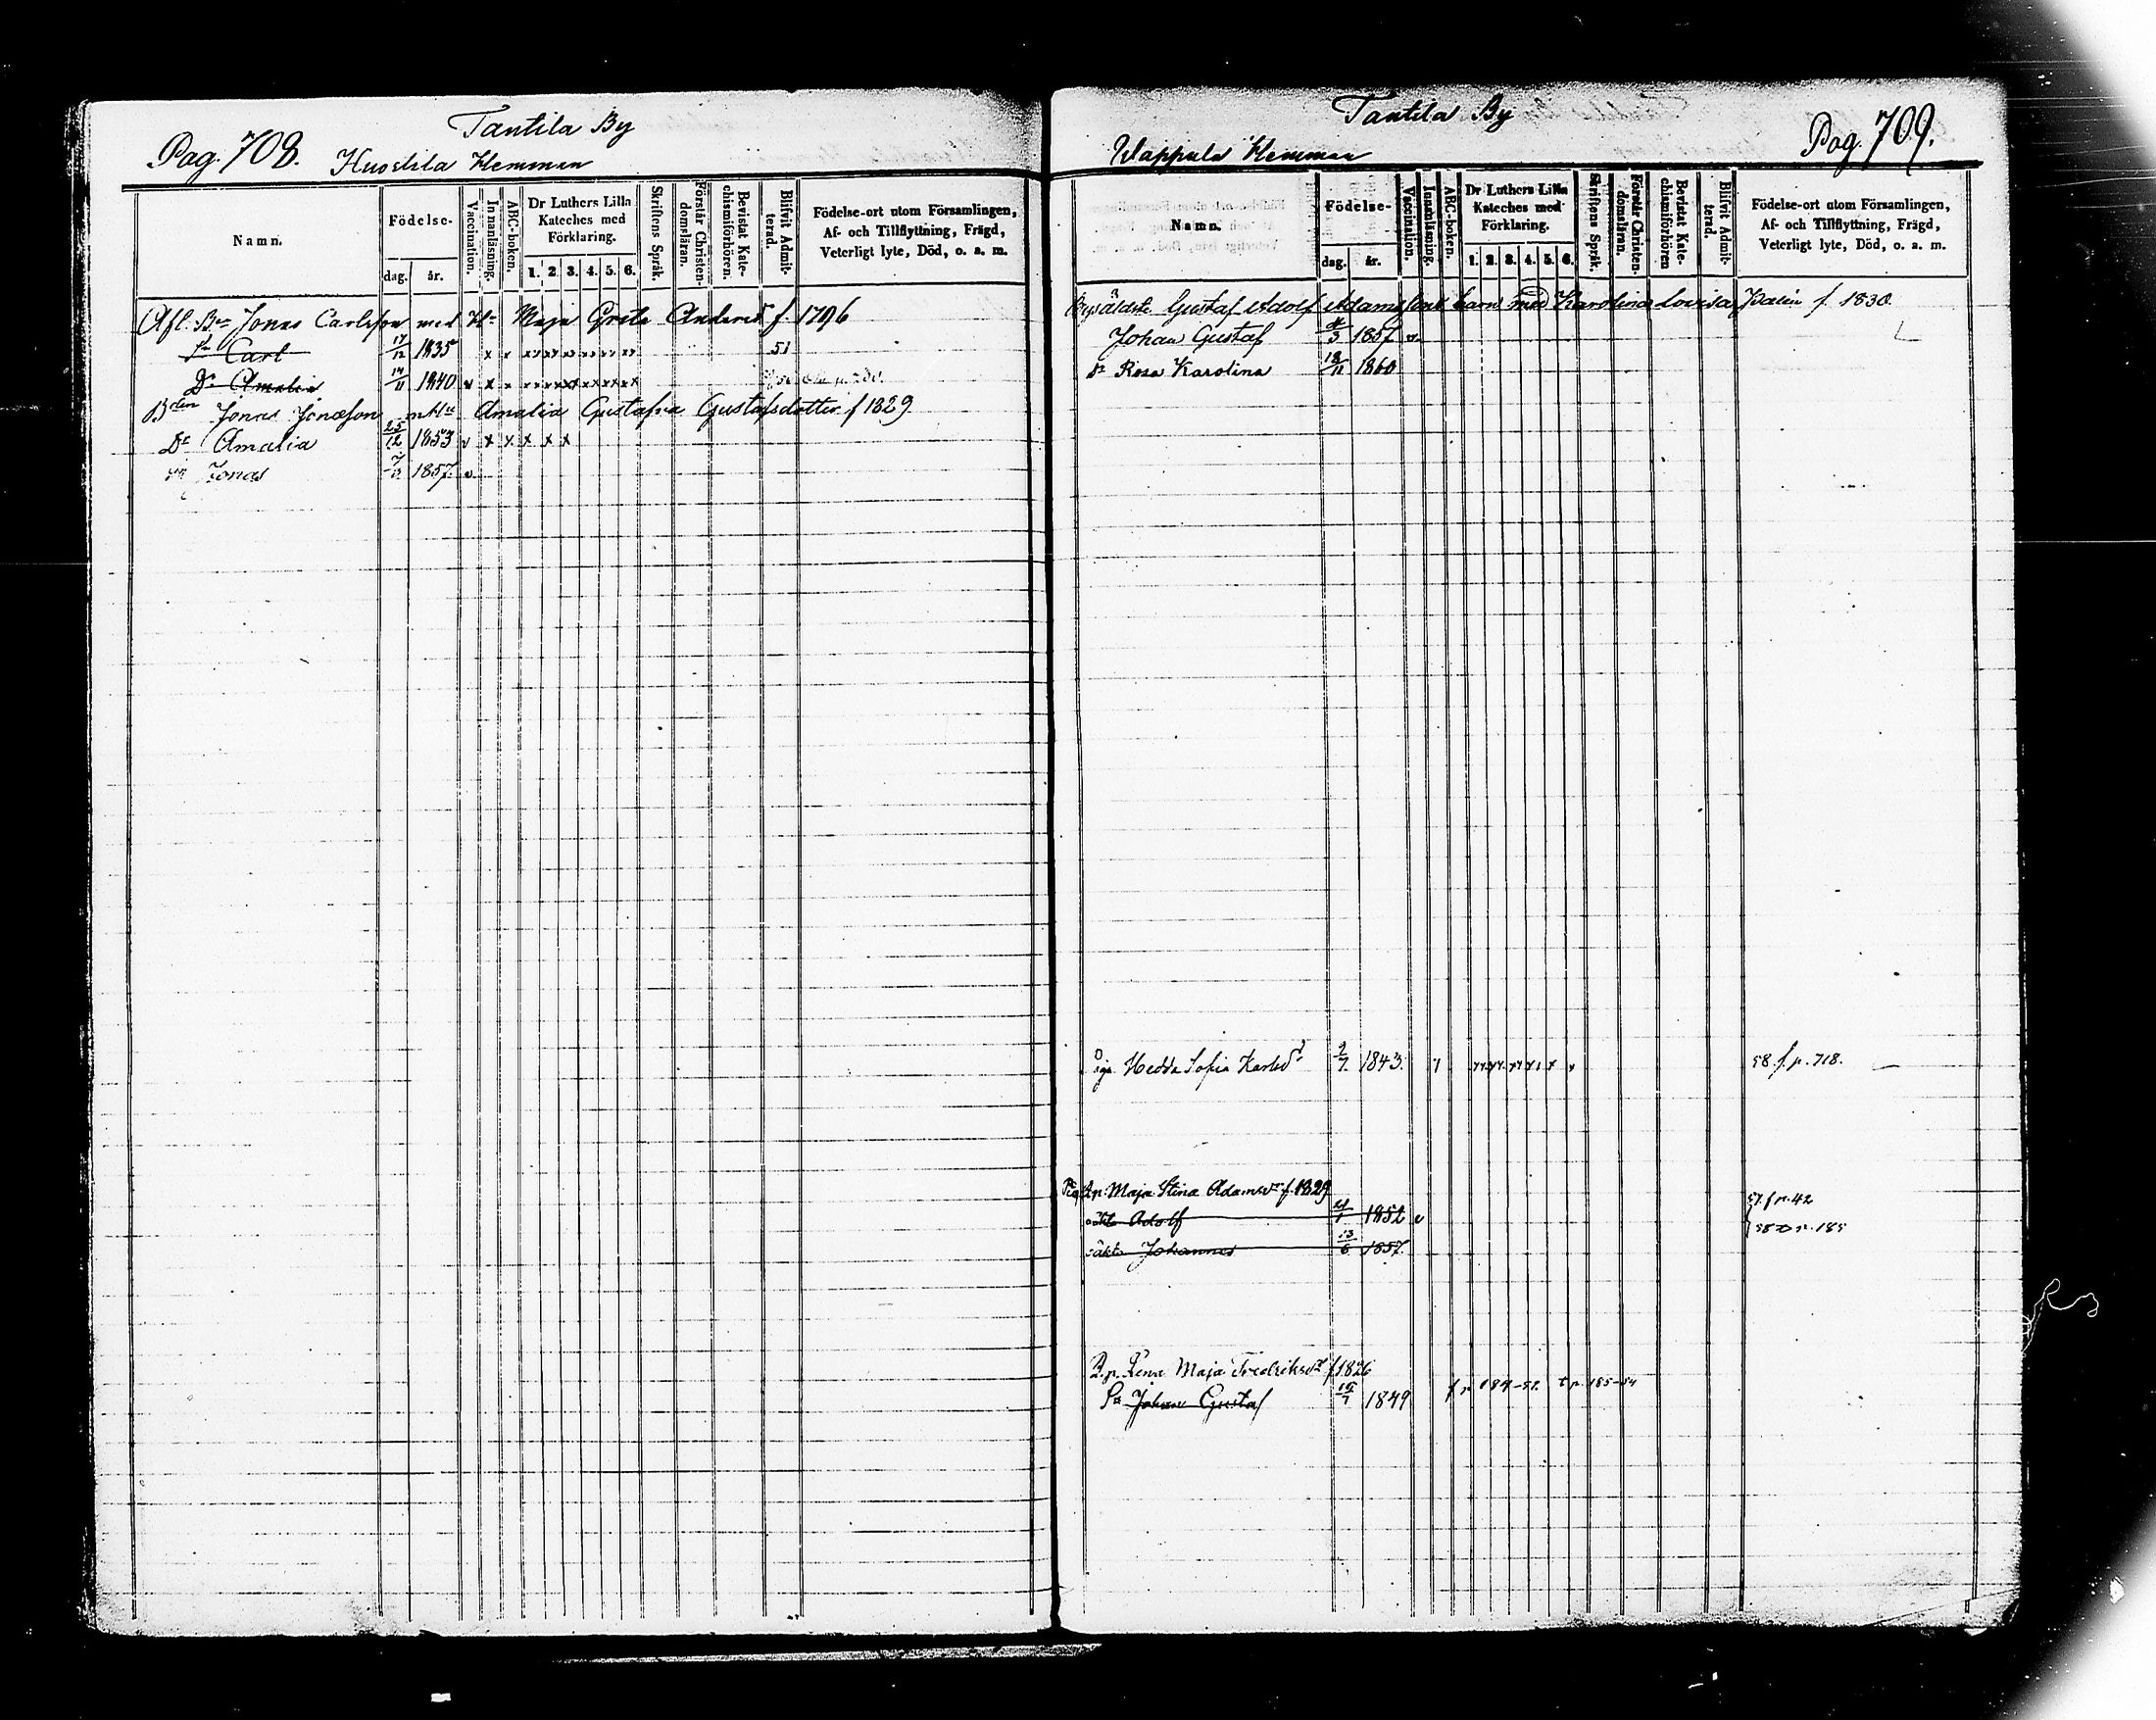 Tantila By
Pag. 708. Huostila Hemman
Namn.
Födelse-
dag. år.
Vaccination.
Innanläsning.
ABC-boken.
Dr Luthers Lilla Kateches med Förklaring.
1. 2. 3. 4. 5. 6.
Skriftens Språk.
Förstår Christendomsläran.
Bevistat Katechismiförhören.
Blifvit Admitterad.
Födelse-ort utom Församlingen,
Af- och Tillflyttning, Frägd,
Veterligt lyte, Död, o. a. m.
Afl. Bn Jonas Carlsson med H Maja Greta Andersd f. 1796
Sn Carl 17/12 1835 x x 51
Dr Amalia 14/11 1840 v x x
Bden Jonas Jonasson m H Amalia Gustafva Gustafsdotter f 1829
Dr Amalia 25/12 1853 v x x x x x
Sn Jonas 1857. v
Tantila By
Wappula Hemman Pag. 709.
Namn.
Födelse-
dag. år.
Vaccination.
Innanläsning.
ABC-boken.
Dr Luthers Lilla Kateches med Förklaring.
1. 2. 3. 4. 5. 6.
Skriftens Språk.
Förstår Christendomsläran.
Bevistat Katechismiförhören
Blifvit Admitterad.
Födelse-ort utom Församlingen,
Af- och Tillflyttning, Frägd,
Veterligt lyte, Död, o. a. m.
Byså̈ldste Gustaf Adolf Adamsson barn med Karolina Lovisa f. 1830
Johan Gustaf 1857 v.
Dr Rosa Karolina 18/11 1860
Pig. Hedda Sofia Karlsdr 9/7 1843. 58. f. p. 718.
Maja Stina Adamsdr f. 1829 57. f p. 42
Adolf 1852 v 58 p. 185
Johannes 13/6 1857.
Lena Maja Fredriksdr f 1826
Sn Johan Gustaf 1849 f p 184-52. t p. 185-54